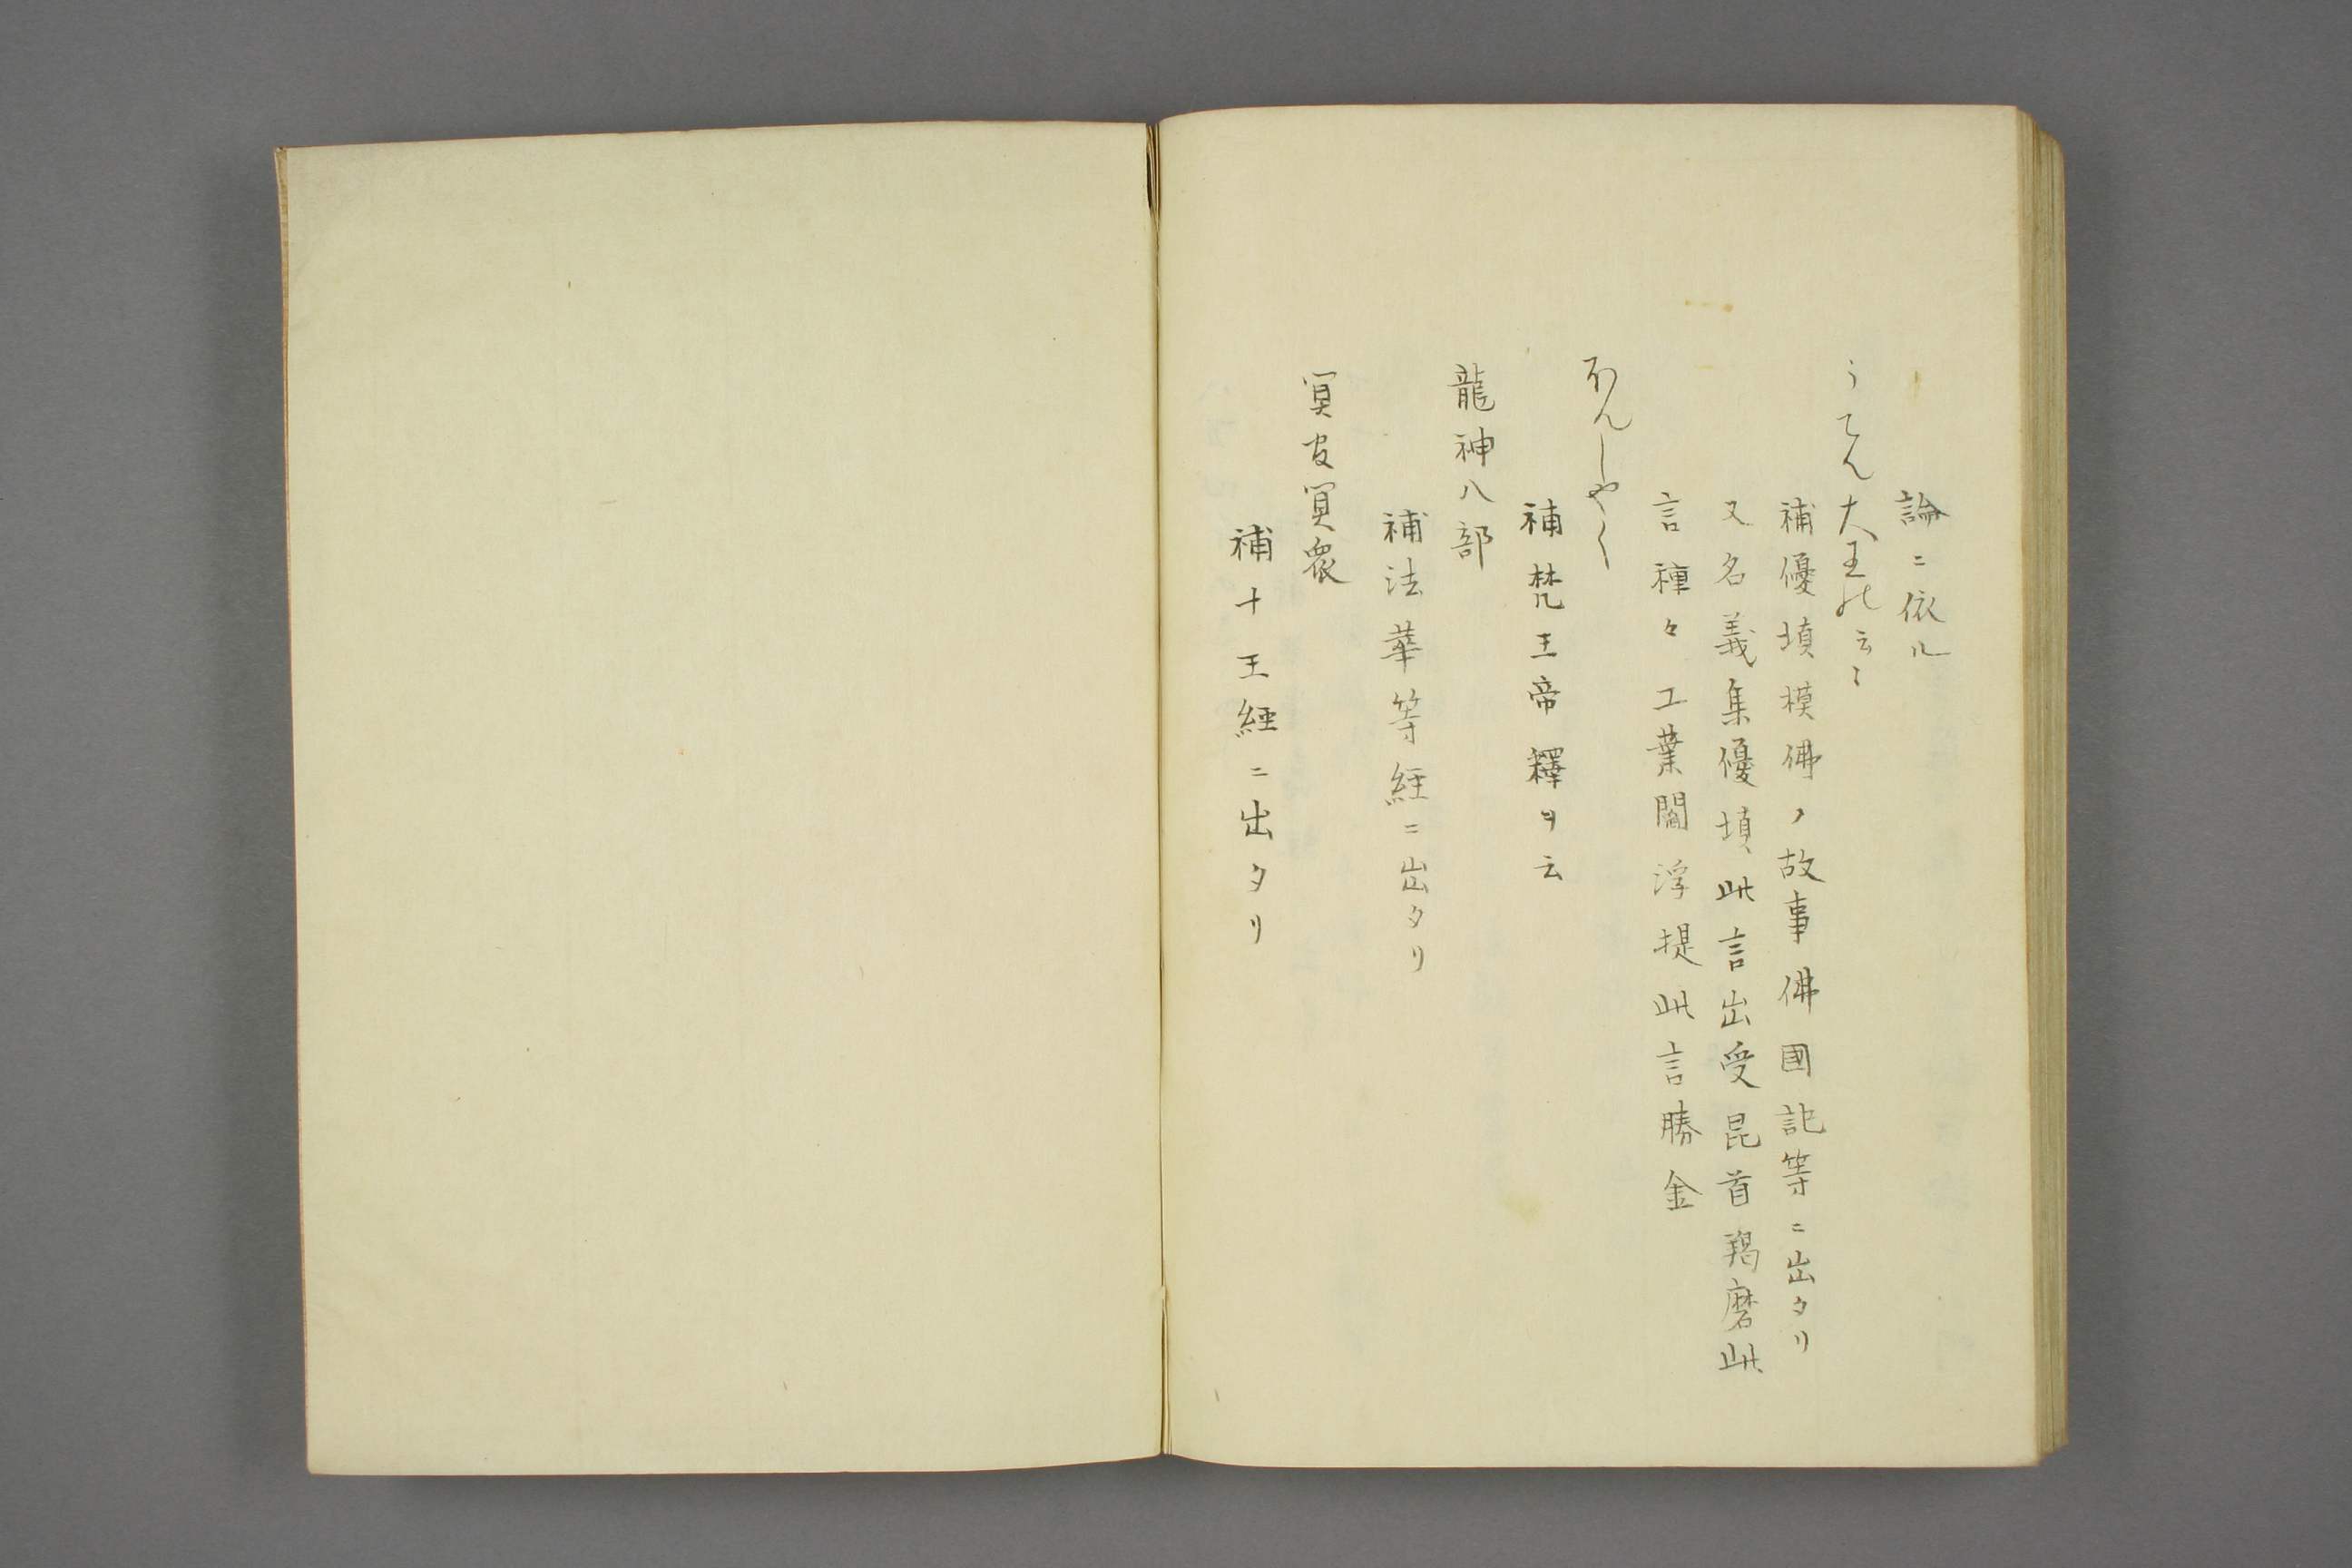 論ニ依ル
うてん大王の云〻
補優塡模佛ノ故事佛國記等ニ出タリ
又名義集優塡此言出受昆首羯磨此
言種々工業閻浮提此言勝金
ぼんしやく
補梵王帝釋ヲ云
龍神八部
補法華等經ニ出タリ
冥官冥衆
補十王經ニ出タリ